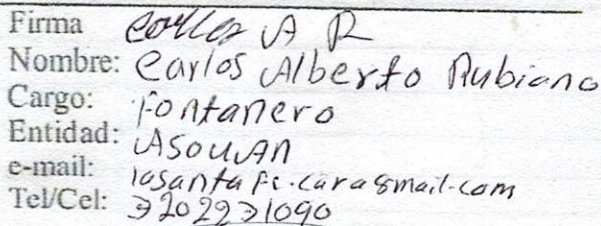 Firma Carlos A R
Nombre: Carlos Alberto Rubiano
Cargo: Fontanero
Entidad: ASOUAN
e-mail: iasantafe.cara@mail.com
Tel/Cel: 3202231090